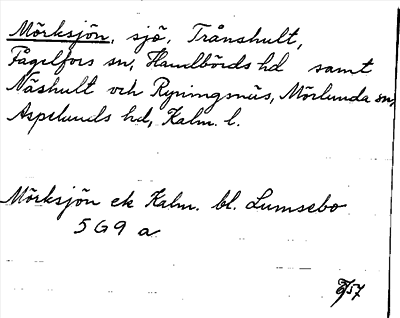 Mörksjön, sjö, Trånshult,
Fågelfors sn, Handbörds hd samt
Näshult och Ryningsnäs, Mörlunda sn,
Aspelands hd, Kalm. l.
Mörksjön ek Kalm. bl. Lumsebo
5G9 a
57